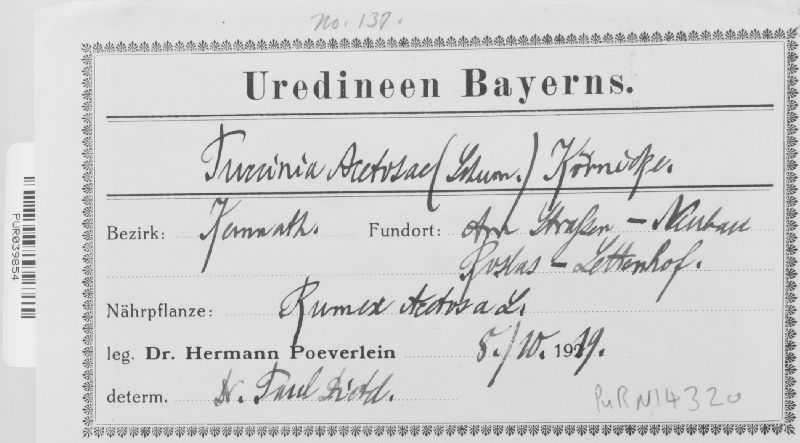 No. 137.
Uredineen Bayerns.
Puccinia Acetosae (Schum.) Körnicke.
Bezirk: Kemnath. Fundort: Am Straßen – Neubau
Roslas – Lettenhof.
Nährpflanze: Rumex Acetosa L.
leg. Dr. Hermann Poeverlein 5./10. 1919.
determ. Dr. Paul Dietel.
PUR N14320
PUR039854